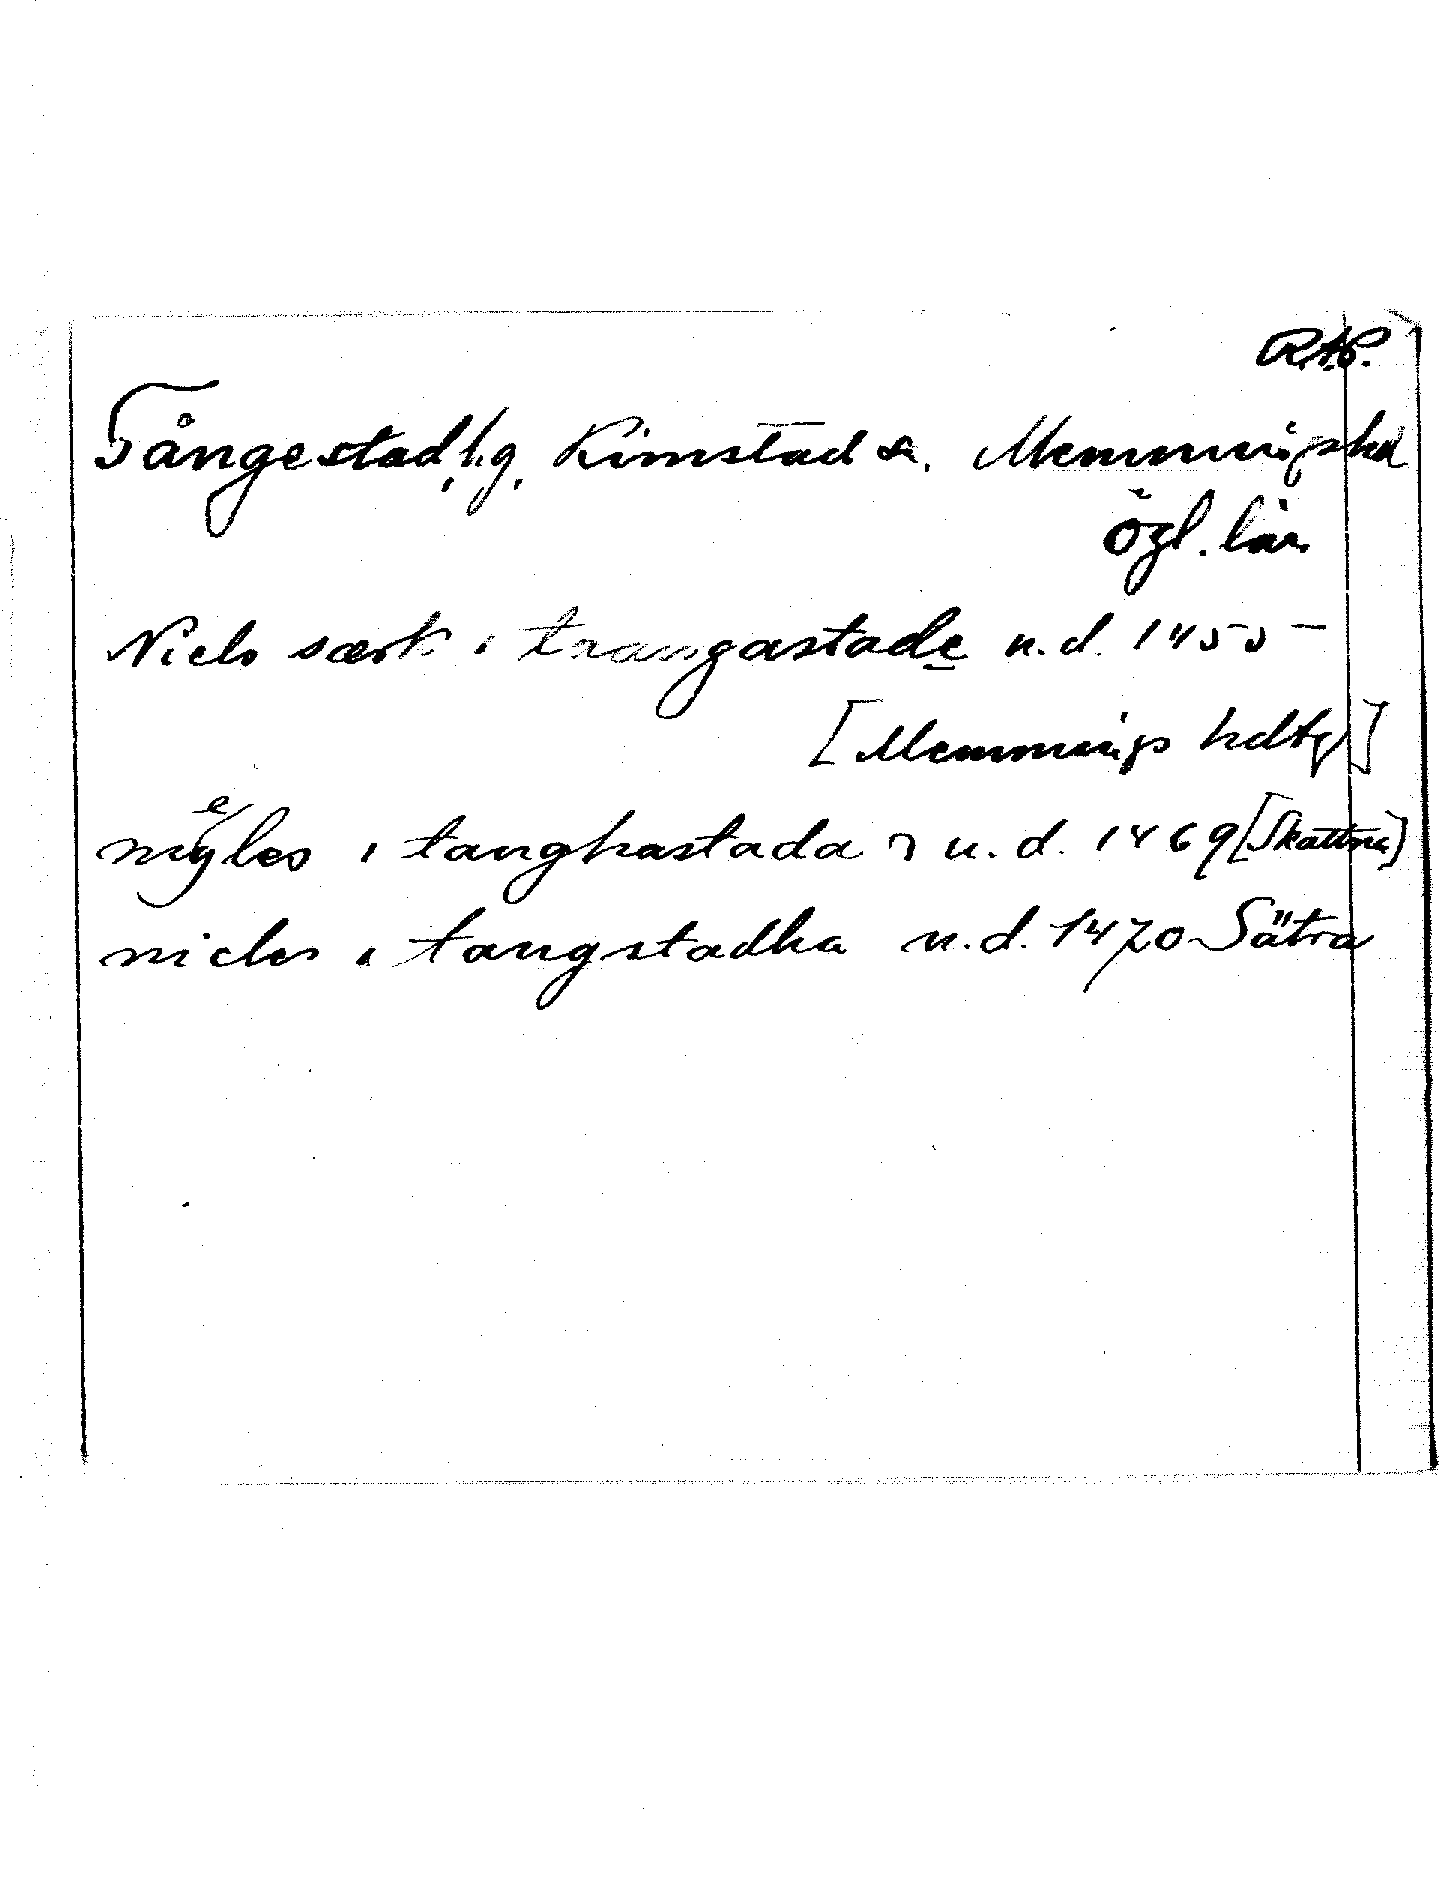 RAP.
Tångestad, hg, Kimstad sn. Memmings hd
Ögl. län
Niels særk i trangastade u.d. 1455
[Memmings hdtg]
nigles i tanghastada u.d. 1469 [Skattna]
nicles i tangstadha u.d. 1470 Sätra